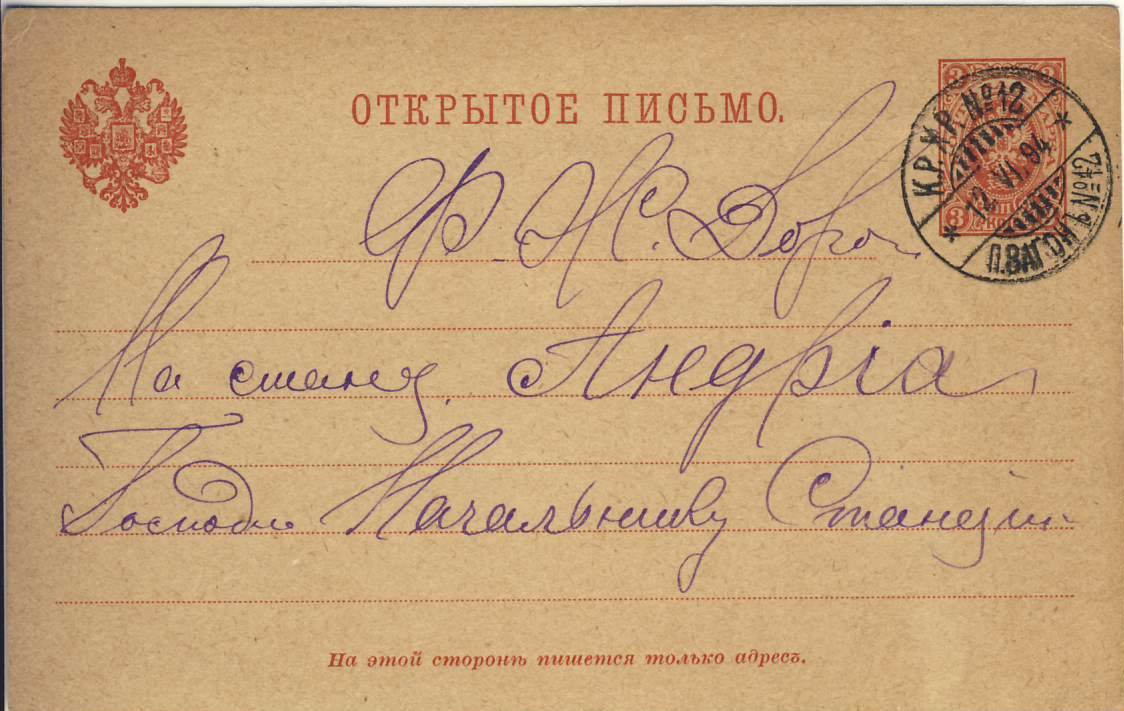 ОТКРЫТОЕ ПИСЬМО.
К.Р.К.Р. №12
12 VI. 94
П.ВАГОНЪ №12
Ф. Ж. Доро
На станц. Андрія
Господи Начальнику Станціи
На этой сторонѣ пишется только адресъ.